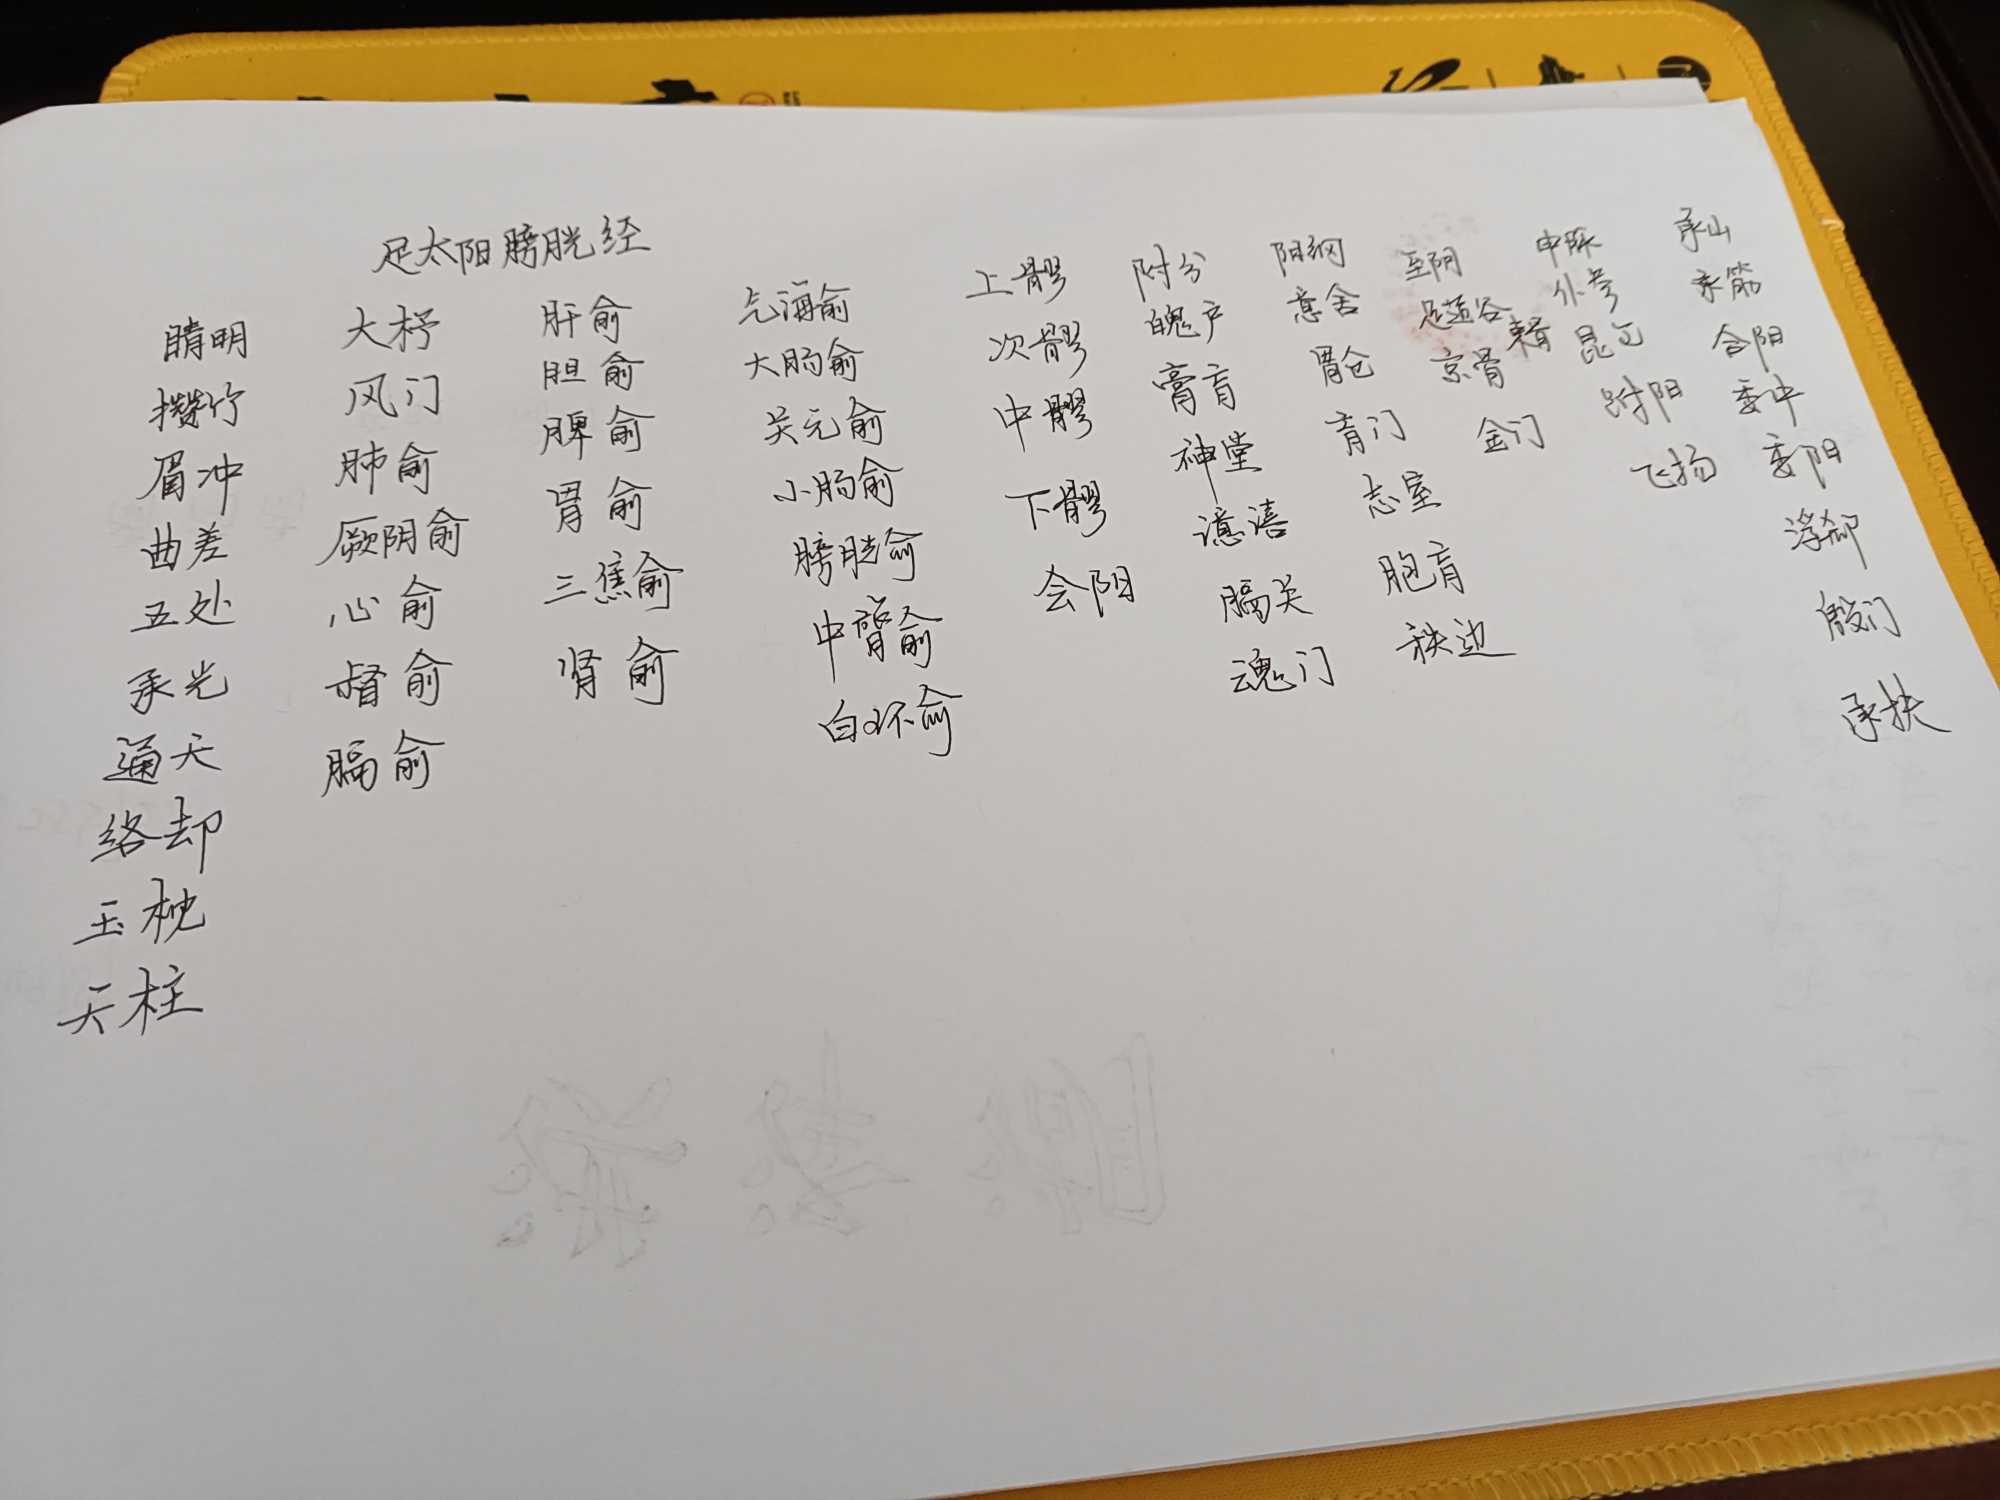 足太阳膀胱经
睛明
攒竹
眉冲
曲差
五处
承光
通天
络却
玉枕
天柱
大杼
风门
肺俞
厥阴俞
心俞
督俞
膈俞
肝俞
胆俞
脾俞
胃俞
三焦俞
肾俞
气海俞
大肠俞
关元俞
小肠俞
膀胱俞
中膂俞
白环俞
上髎
次髎
中髎
下髎
会阳
附分
魄户
膏肓
神堂
譩譆
膈关
魂门
阳纲
意舍
胃仓
肓门
志室
胞肓
秩边
至阴
足通谷
束骨
京骨
金门
申脉
仆参
昆仑
跗阳
飞扬
承山
承筋
合阳
委中
委阳
浮郄
殷门
承扶